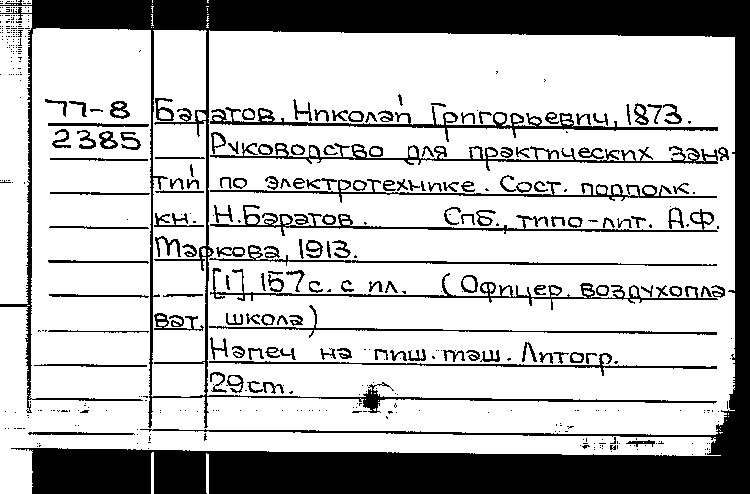 77-8 Баратов, Николай Григорьевич, 1873.
2385 Руководство для практических заня-
тий по электротехнике. Сост. подполк.
кн. Н.Баратов. Спб., типо-лит. А.Ф.
Маркова, 1913.
[1], 157с. с ил. (Офицер. воздухопла-
ват. школа)
Напеч на пиш. маш. Литогр.
29см.